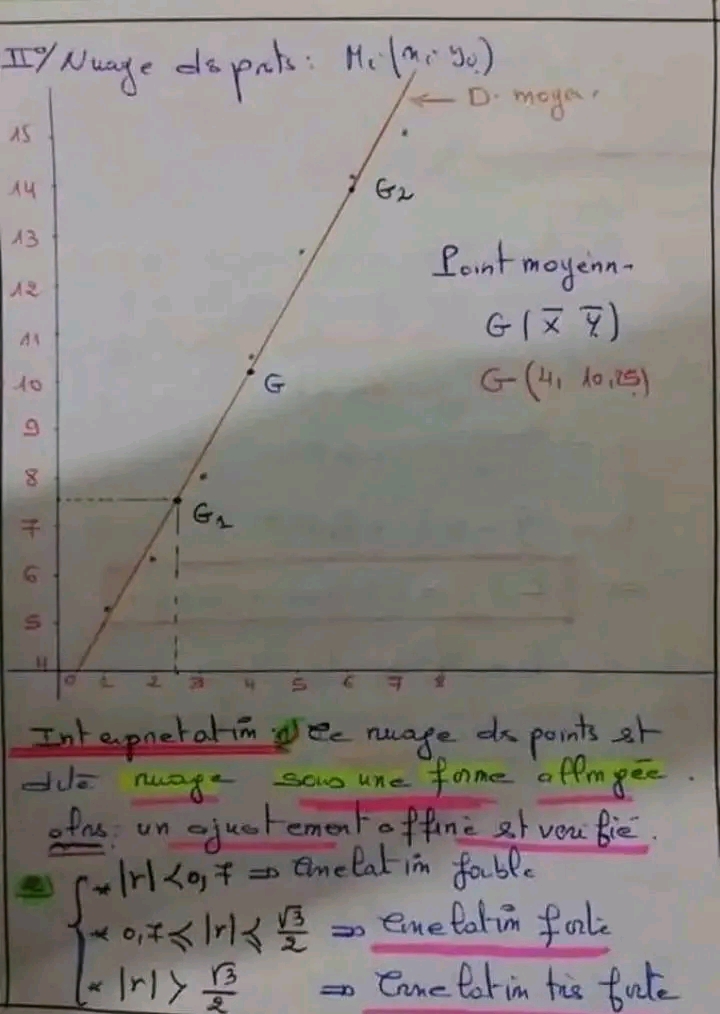 II°/ Nuage ds pnts : Mi (xi yi)
← D. moye.
15
14
13
12
11
10
9
8
7
6
5
4
G2
Point moyenn-
G( x̄ ȳ )
G (4, 10,25)
G
G1
0 1 2 3 4 5 6 7 8
Interpretation 1) Ce nuage ds points est
dite nuage sous une forme allongée.
alrs: un ajustement affine est verifié.
2) { * |r| < 0,7 ⇒ Correlation faible
* 0,7 ⩽ |r| ⩽ √3/2 ⇒ Correlation forte
* |r| > √3/2 ⇒ Correlation très forte